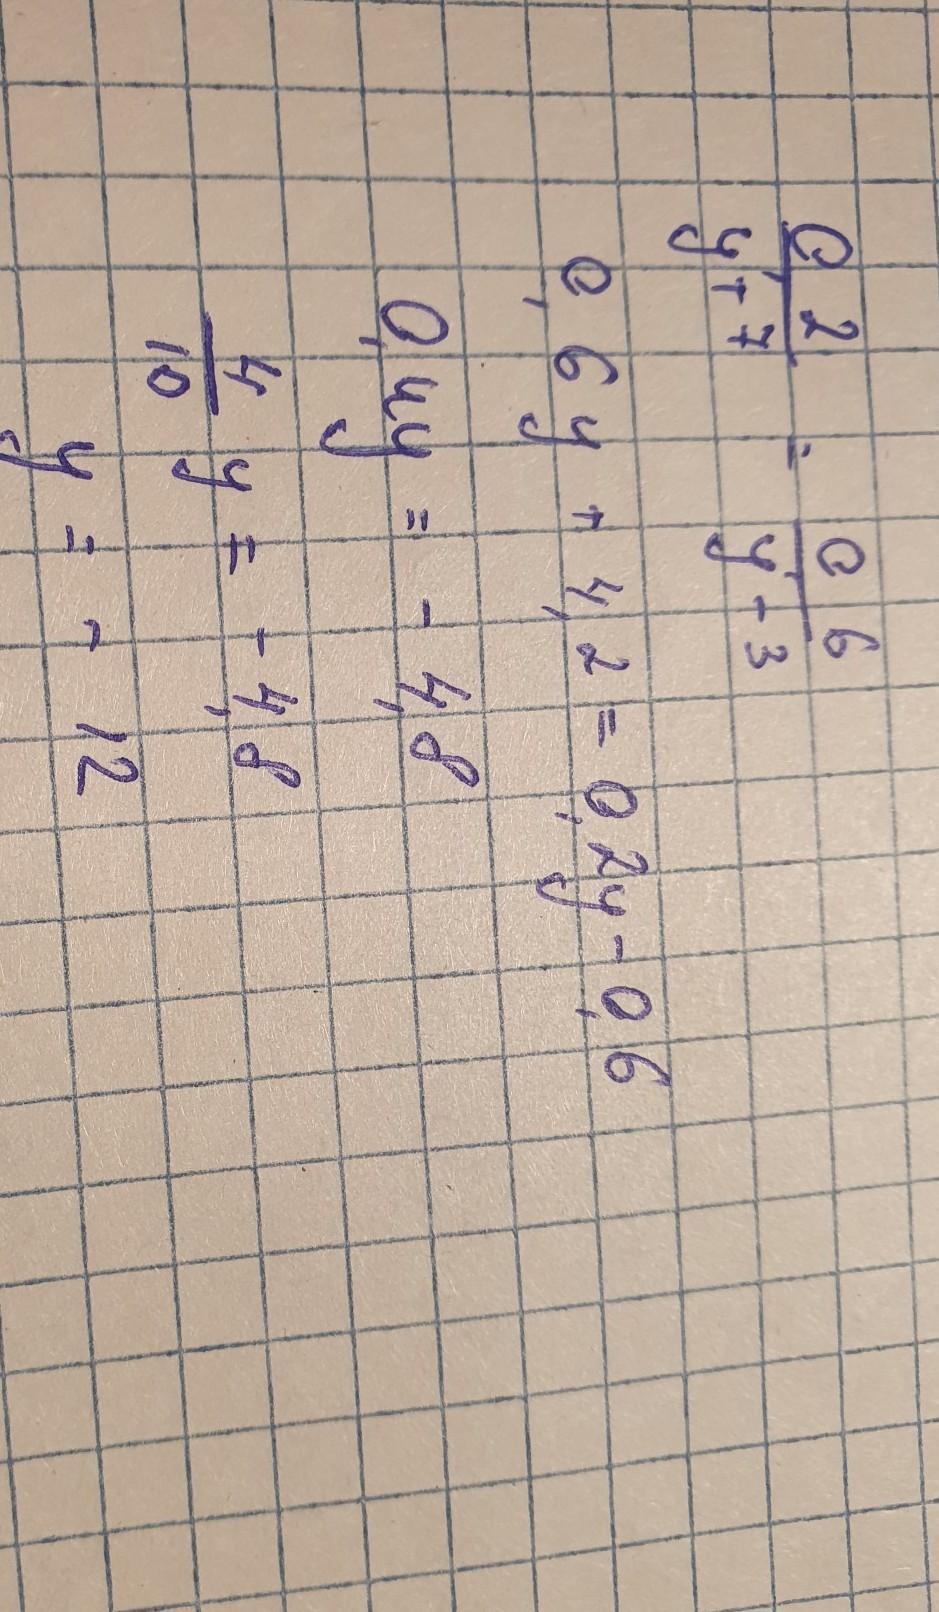 0,2/y+7 = 0,6/y-3
0,6y + 4,2 = 0,2y - 0,6
0,4y = - 4,8
4/10 y = - 4,8
y = - 12